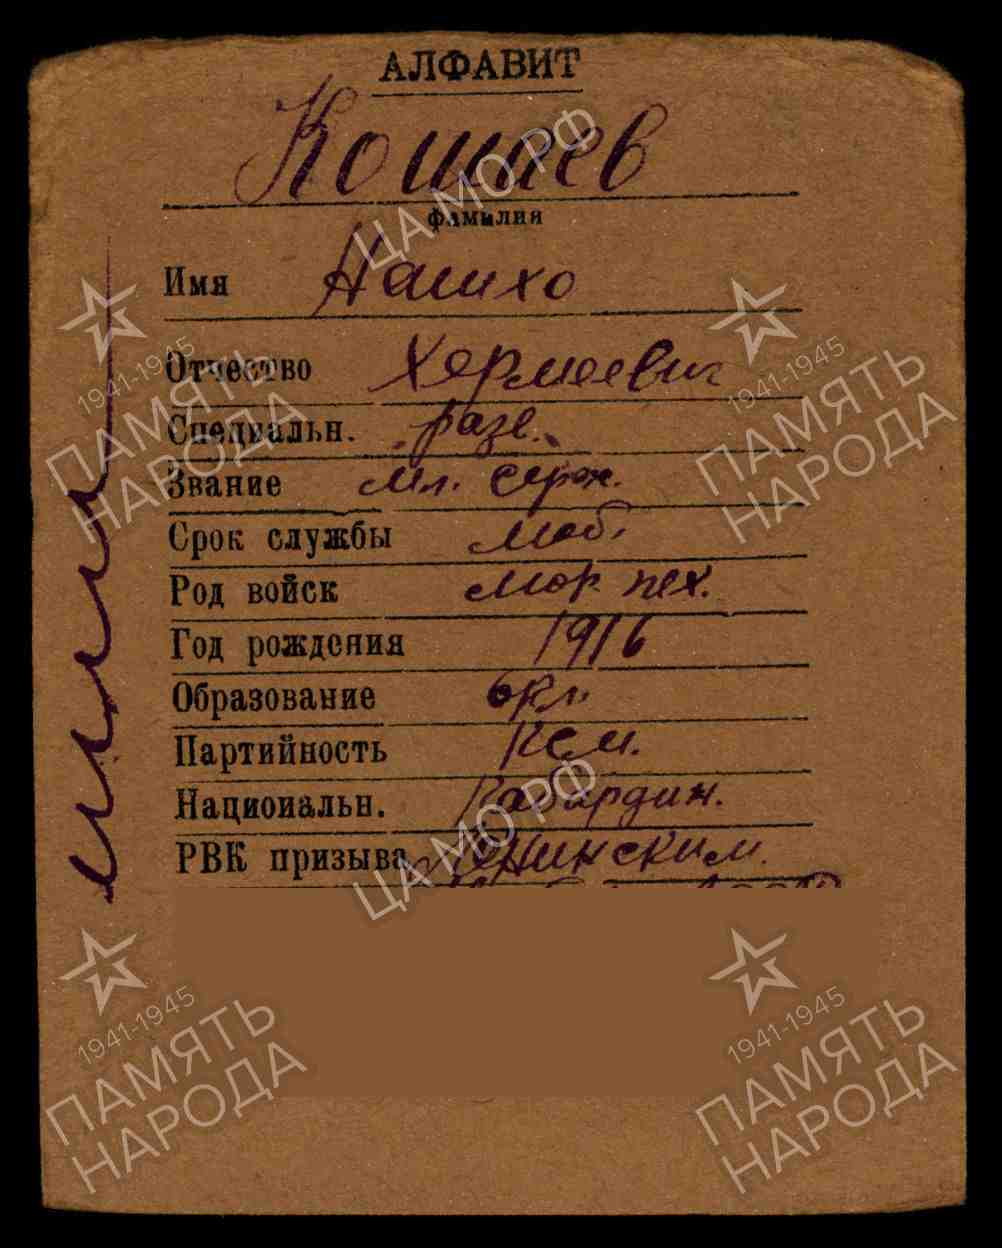 АЛФАВИТ
Кошаев
фамилия
Имя Нашхо
Отчество
Специальн. разв.
Звание мл. серж.
Срок службы моб.
Род войск мор. пех.
Год рождения 1916
Образование 6 кл.
Партийность к.с.м.
Национальн. Кабардин.
РВК призыва Ленинским
ЦА МО РФ
1941-1945
ПАМЯТЬ
НАРОДА
1941-1945
ПАМЯТЬ
НАРОДА
ЦА МО РФ
1941-1945
ПАМЯТЬ
НАРОДА
1941-1945
ПАМЯТЬ
НАРОДА